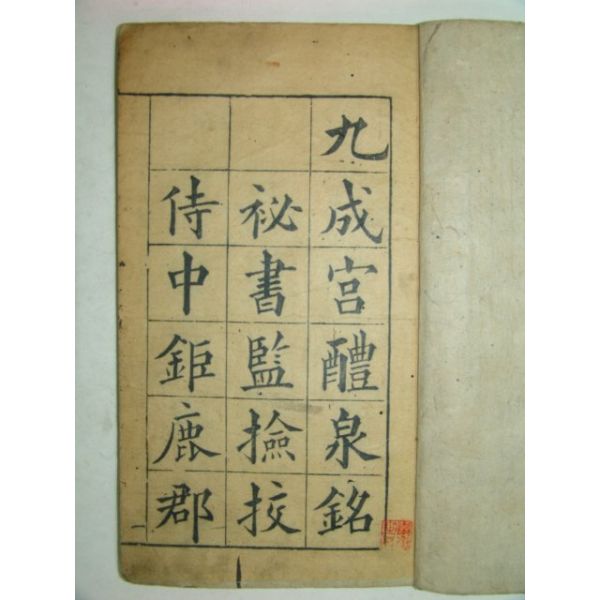 九成宮醴泉銘
祕書監撿挍
侍中鉅鹿郡
一